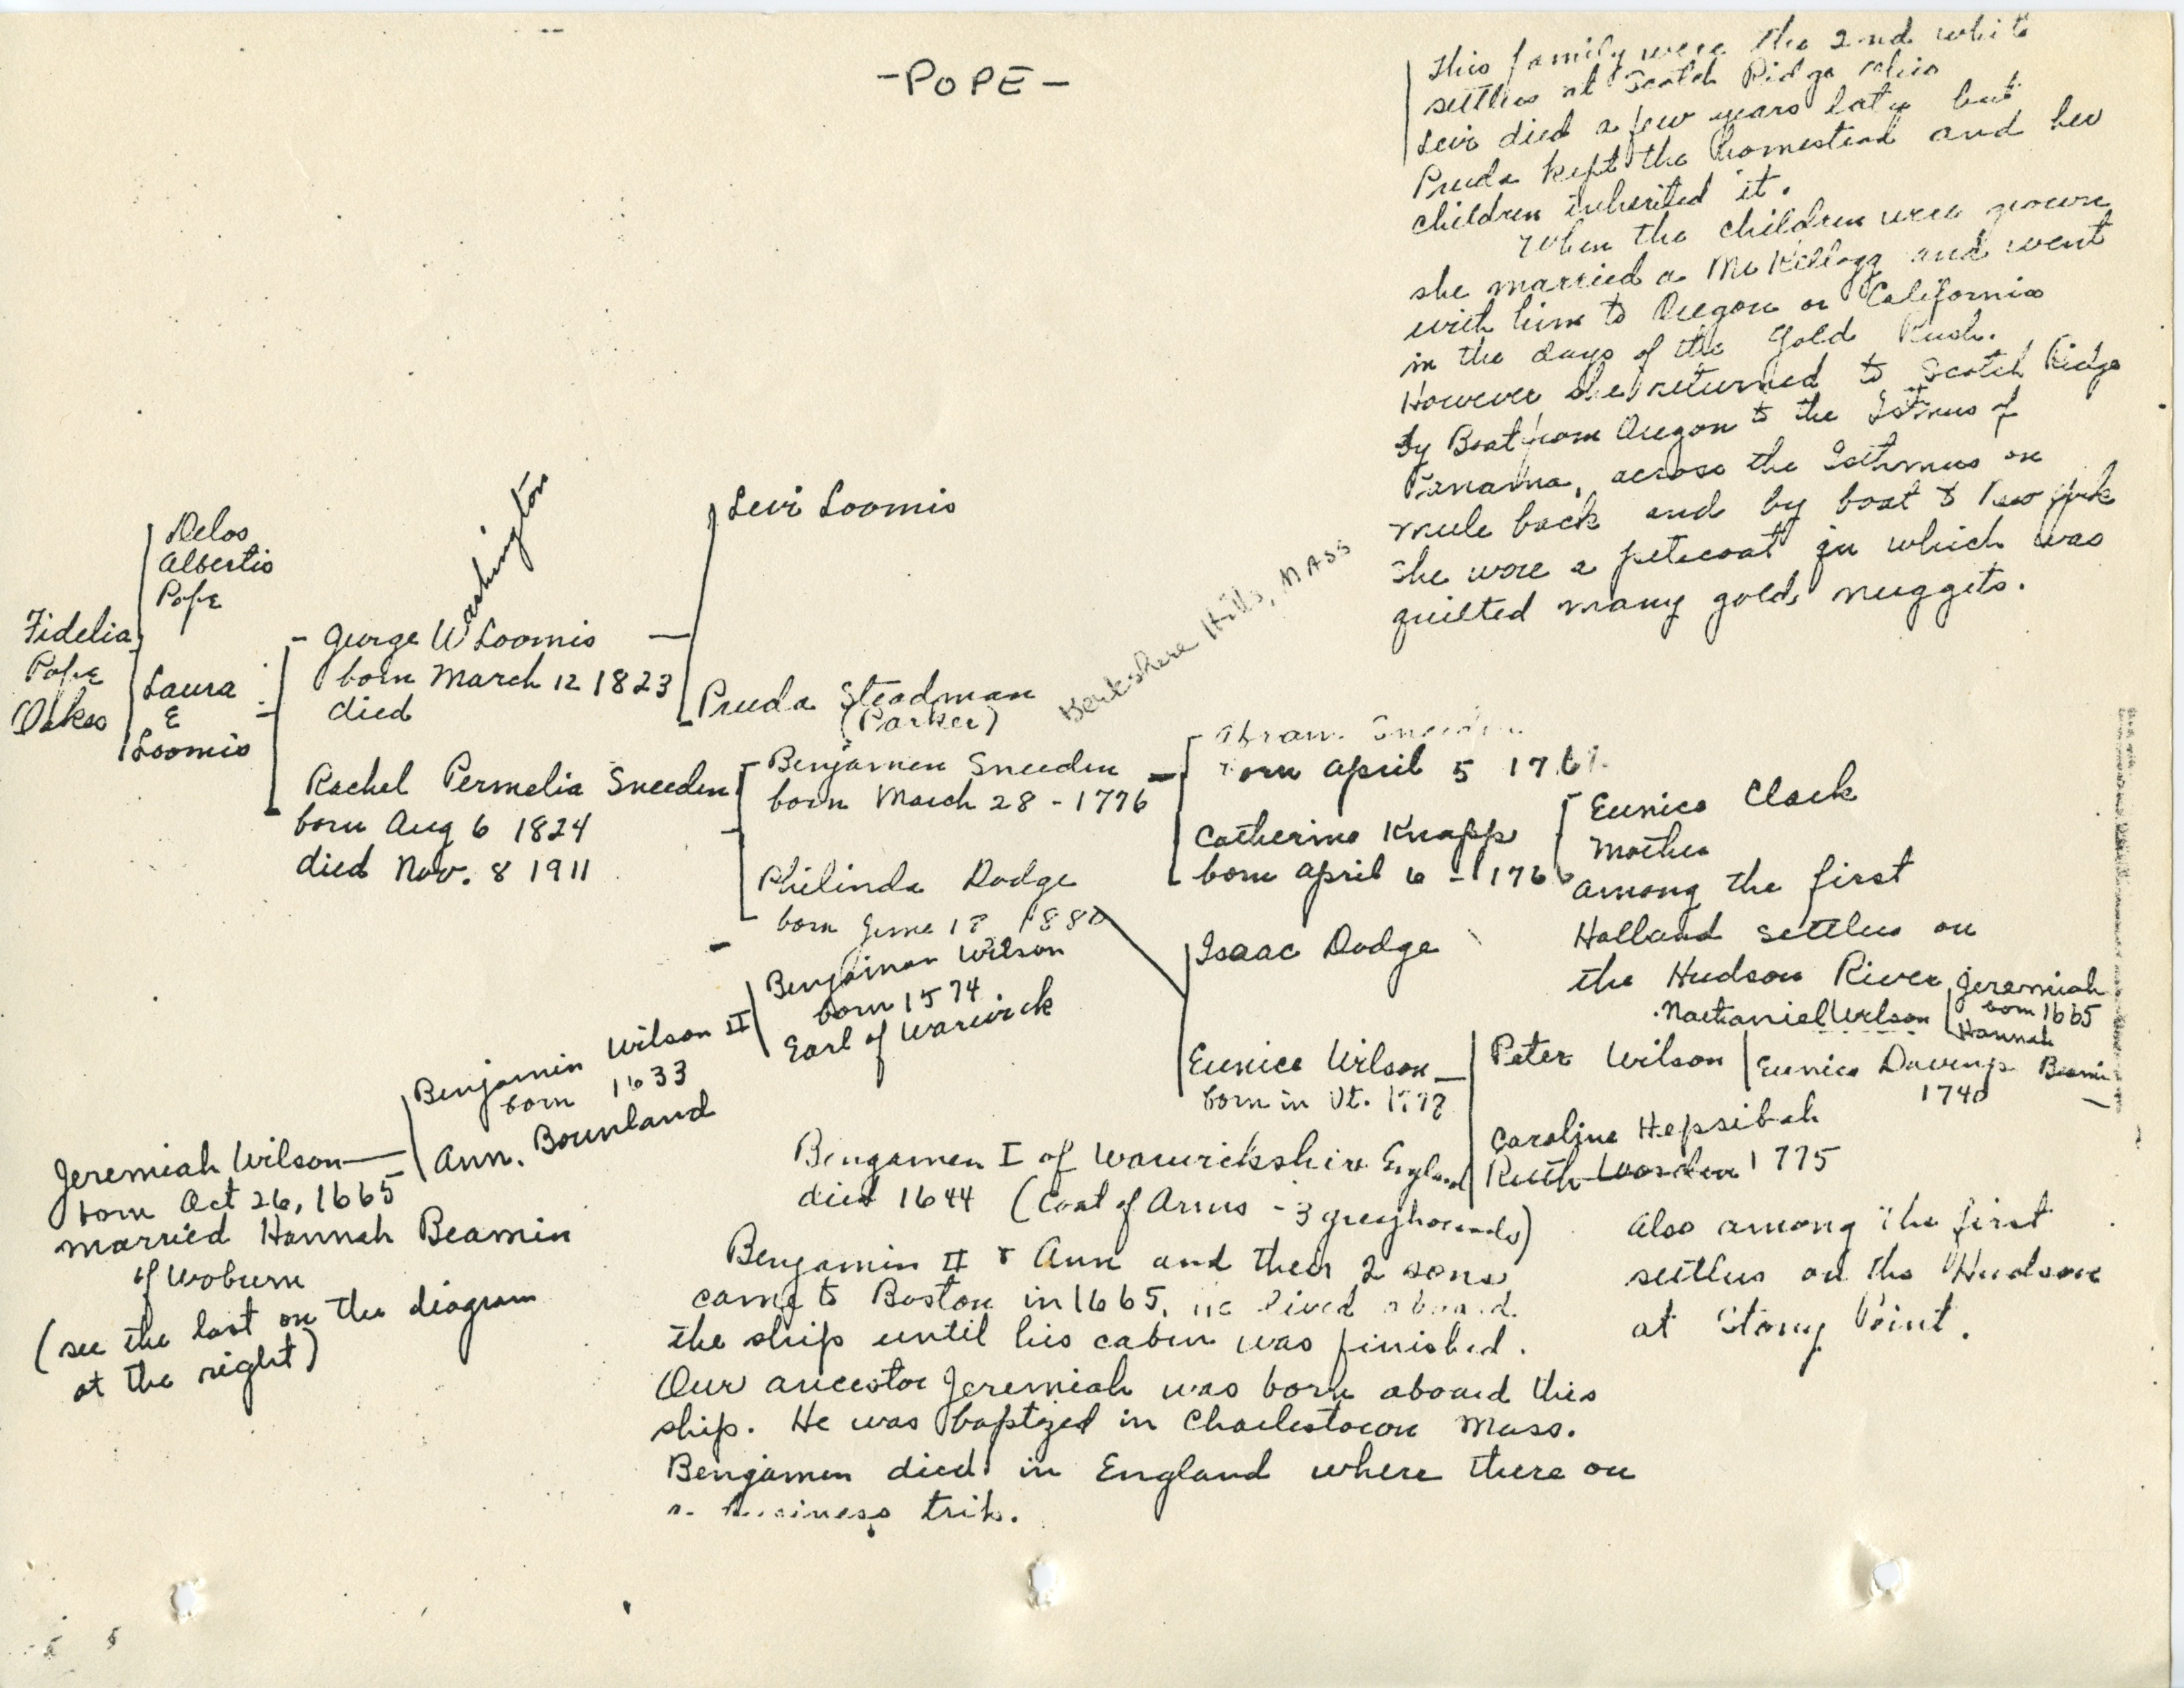 -POPE-
This family were the 2nd white
settlers at Scotch Ridge Ohio
Levi died a few years later but
Pruda kept the homestead and her
children inherited it.
When the children were grown
she married a Mr Kellogg and went
with him to Oregon or California
in the days of the Gold Rush.
However she returned to Scotch Ridge
by Boat from Oregon to the Istmus of
Panama, across the Isthmus on
mule back and by boat to New York
She wore a petecoat in which was
quilted many gold nuggets.
Fidelia
Pope
Oakes
Delos
Albertis
Pope
Laura
E
Loomis
Washington
George W Loomis
born March 12 1823
died
Rachel Permelia Sneeden
born Aug 6 1824
died Nov. 8 1911
Levi Loomis
Pruda Steadman
(Parker)
Berkshire Hills, MASS
Benjamen Sneeden
born March 28 - 1776
Philinda Dodge
born June 18 1880
Abram Sneeden
born April 5 176
Catherine Knapp
born April 6 - 1766
Eunice Clark
Mother
among the first
Holland settlers on
the Hudson River
Isaac Dodge
Eunice Wilson
born in Vt.
Nathaniel Wilson
Jeremiah
born 1665
Hannah
Beamin
Peter Wilson
Eunice
1740
Caroline Hepsibah
Ruth 1775
Also among the first
settlers on the Hudson
at Stony Point.
Jeremiah Wilson
born Oct 26, 1665
married Hannah Beamin
of Woburn
(see the last on the diagram
at the right)
Benjamin Wilson II
born 1633
Ann. Bounland
Benjaman Wilson
born 1574
Earl of Warwick
Bengamen I of Warwickshire England
died 1644 (Coat of Arms - 3 greyhounds)
Benjamin II & Ann and their 2 sons
came to Boston in 1665, he lived aboard
the ship until his cabin was finished.
Our ancestor Jeremiah was born aboard this
ship. He was baptized in Charlestown Mass.
Bengamen died in England where there on
a business trip.